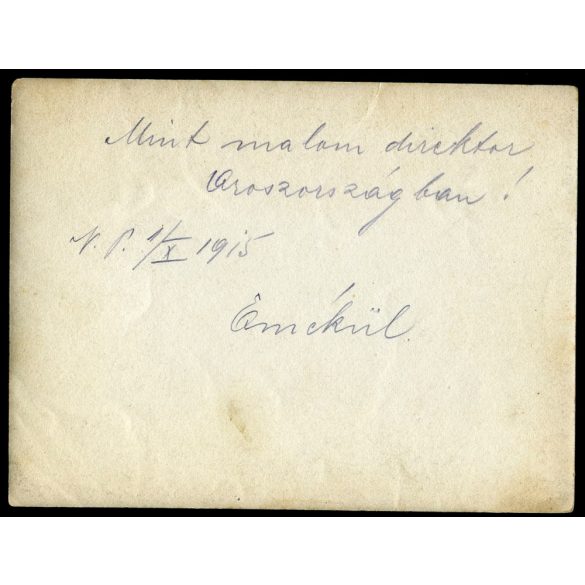 Mint malom direktor
Oroszországban!
N. P. 1/X 1915
Emékül.